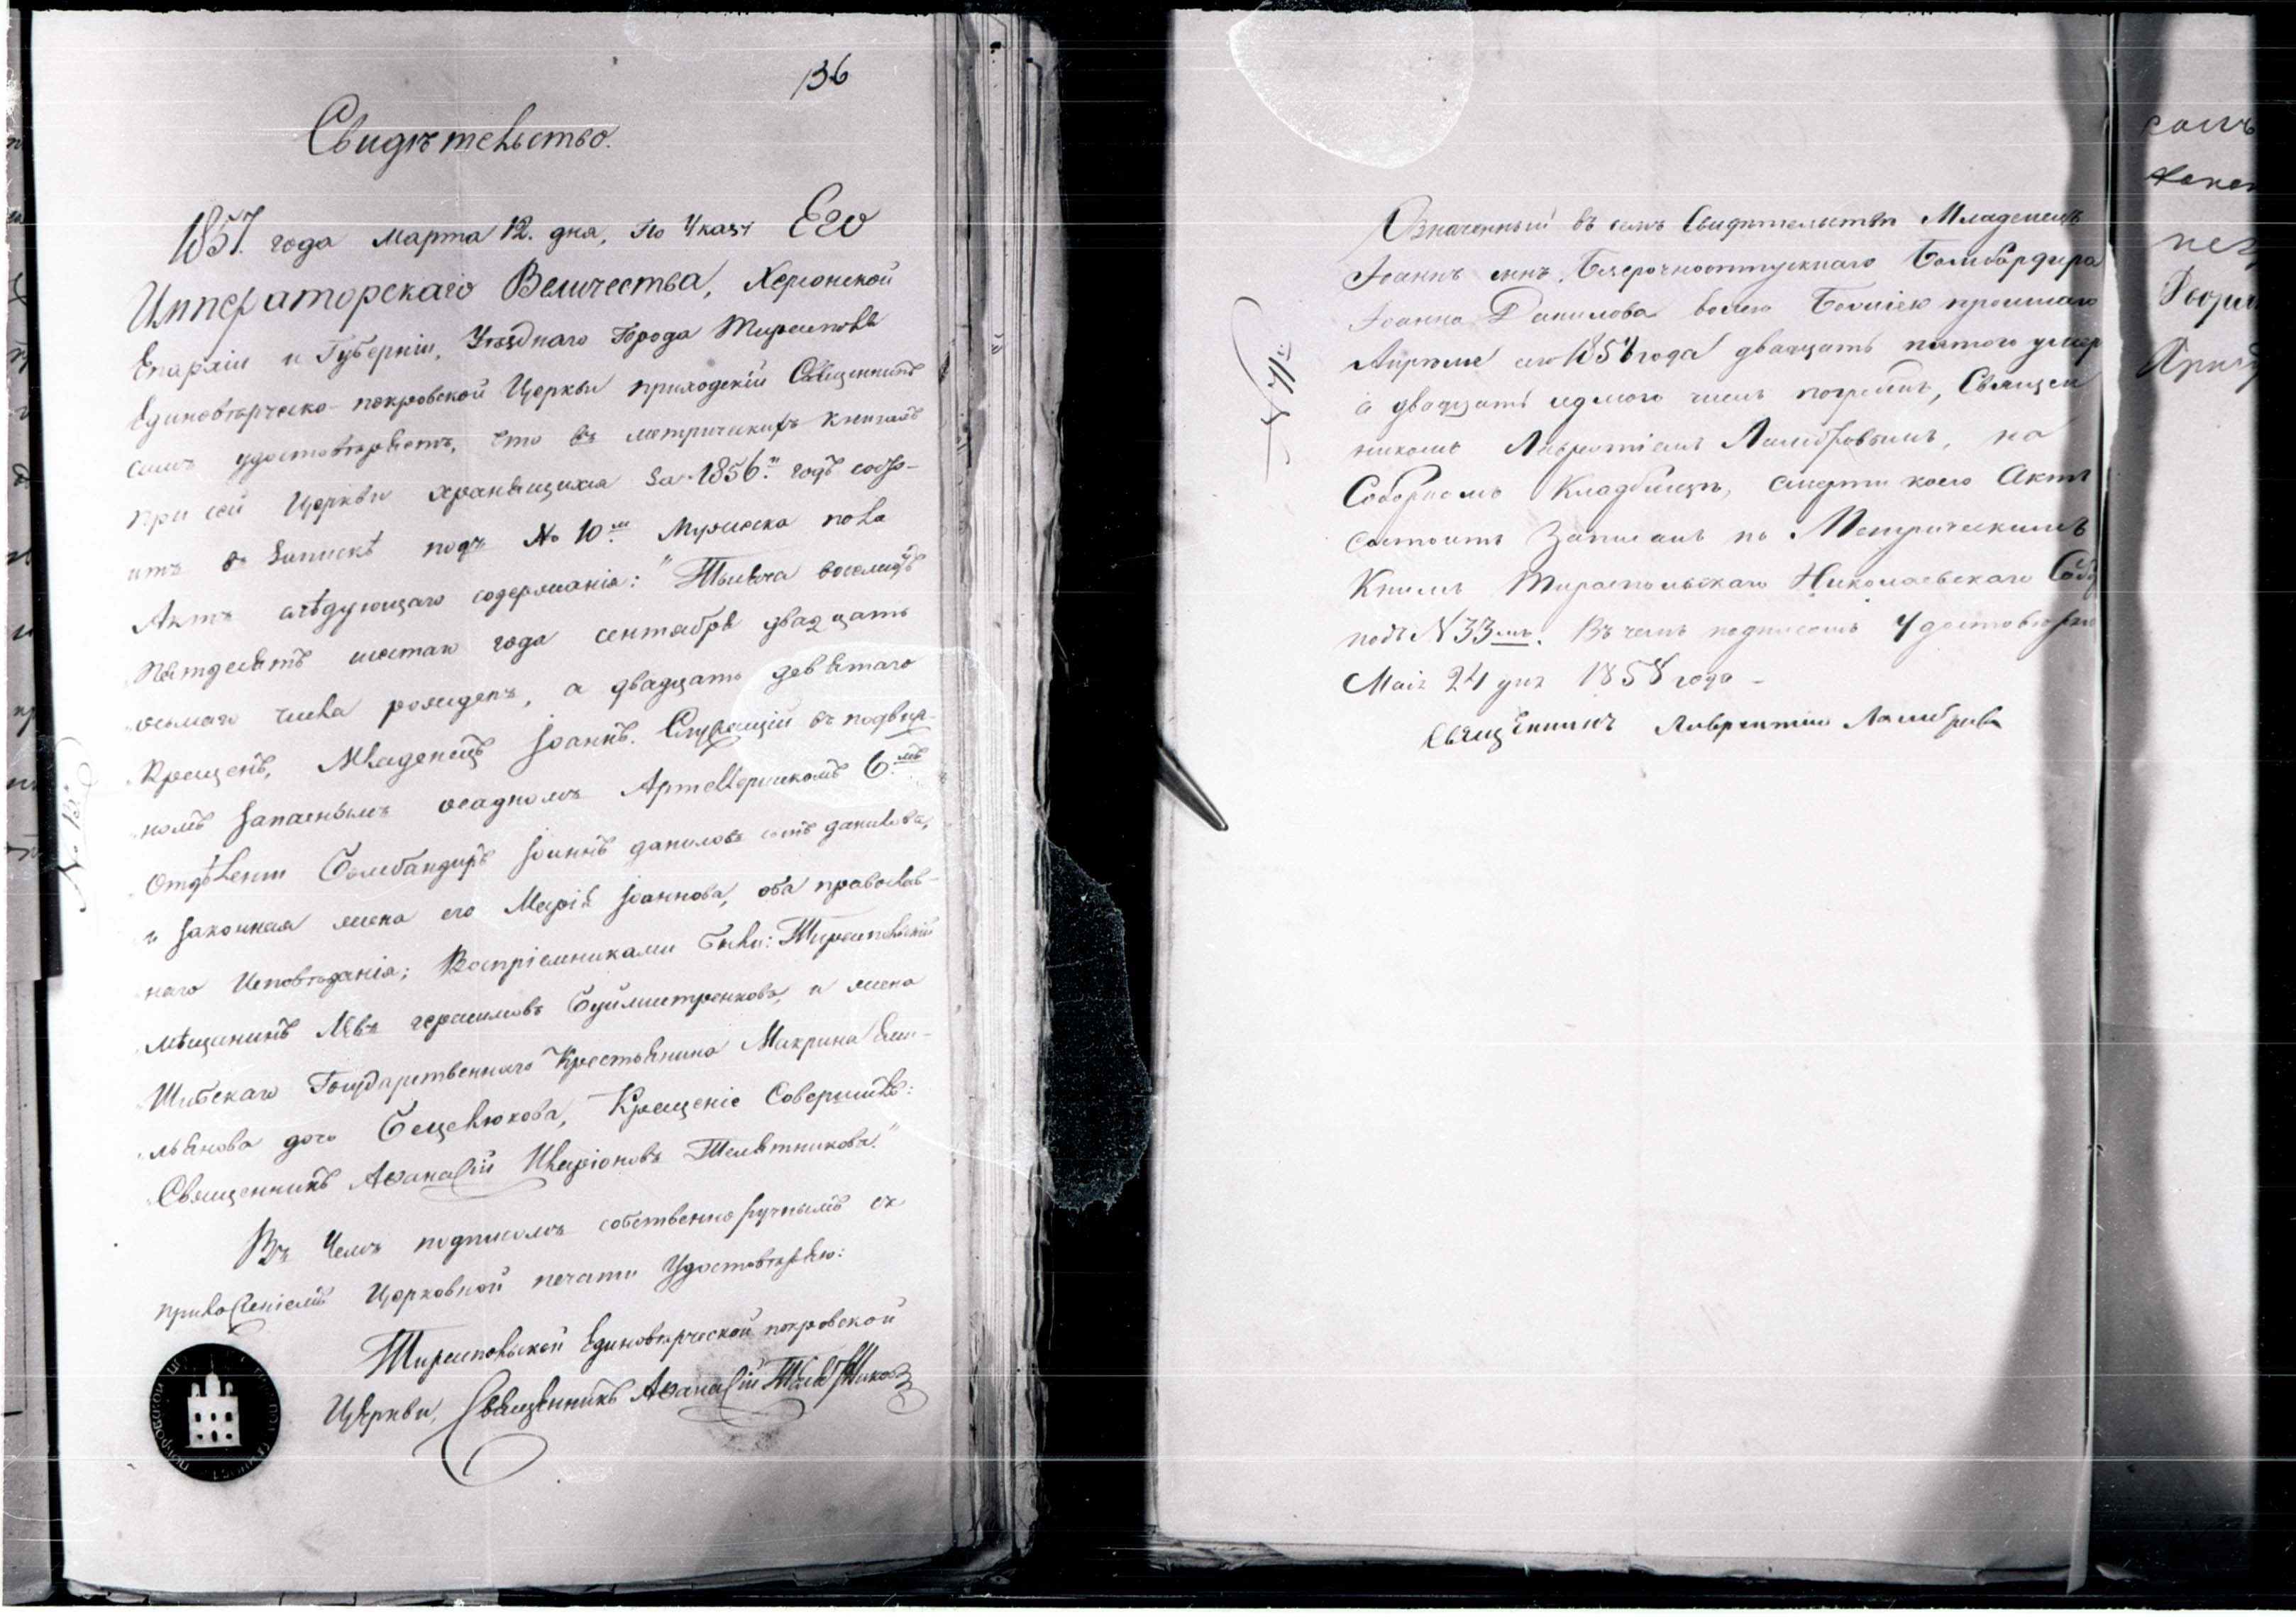 136
Свидѣтельство.
1857. года марта 12. дня, По Указу Его
Императорскаго Величества, Херсонской
Епархіи и Губерніи, Уѣзднаго Города Тирасполя
Единовѣрческо-покровской Церкви приходскій Священникъ
симъ удостовѣряетъ, что въ метрическихъ книгахъ
при сей Церкви хранящихся за 1856й годъ состо-
итъ въ запискѣ подъ № 10мъ Мужеска пола
Актъ слѣдующаго содержанія: "Тысяча восемьсотъ
пятдесятъ шестаго года сентября двадцать
осьмаго числа рожденъ, а двадцать девятаго
Крещенъ, Младенецъ Іоаннъ. Служащій въ подвиж-
номъ запасномъ осадномъ Артеллерійскомъ 6мъ
Отдѣленіи Бомбандиръ Іоаннъ даниловъ сынъ данилова,
и законная жена его Марія Іоаннова, оба православ-
наго Исповѣданія; Воспріемниками были: Тираспольскій
мѣщанинъ герасимовъ и жена
Государственнаго Крестьянина Макрина Еми-
льянова дочь Крещеніе Совершилъ:
Священникъ Аѳанасій Иларіоновъ Телятниковъ."
Въ Чемъ подписомъ собственноручнымъ съ
приложеніемъ Церковной печати Удостовѣряю:
Тираспольской Единовѣрческой покровской
Церкви, Священникъ Аѳанасій Телятниковъ
Означенный въ семъ Свидѣтельствѣ Младенецъ
Іоаннъ сынъ Безсрочноотпускнаго Бомбардира
Іоанна Данилова волею Божіею прошлаго
Апреля сего 1858 года двадцать пятого умер
а двадцать седмого числа погребенъ, Священ
никомъ Лаврентіемъ на
Соборномъ Кладбищѣ, смерти коего Актъ
состоитъ Записанъ по Метрическимъ
Книгамъ Тираспольскаго Николаевскаго Собо
подъ N 33мъ. Въ чемъ подписомъ Удостовѣряю
Маія 24 дня 1858 года
Священникъ Лаврентій